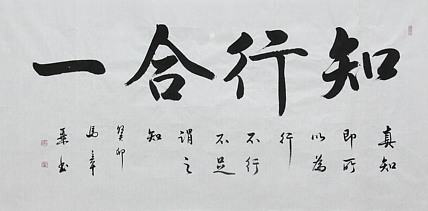 知行合一
真知
即所
以為
行
不行
不足
謂之
知
癸卯
馬章
乘书